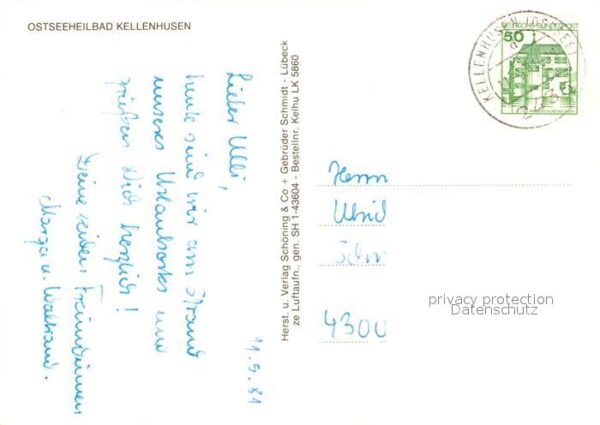 OSTSEEHEILBAD KELLENHUSEN
11.9.81
Lieber Ulli,
heute sind wir am Strand
unseres Urlaubsortes und
grüßen Dich herzlich!
Deine beiden Freundinnen
Marga u. Waltraud.
Herst. u. Verlag Schöning & Co + Gebrüder Schmidt - Lübeck
ze Luftaufn., gen. SH 1-43604 - Bestellnr. Kelhu LK 5860
KELLENHUSEN (OSTSEE)
50
DEUTSCHE BUNDESPOST
Herrn
Ulrich
4300
privacy protection
Datenschutz